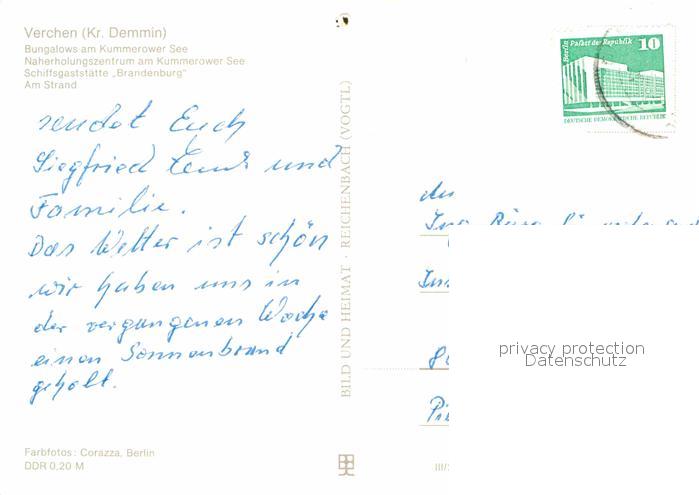 Verchen (Kr. Demmin)
Bungalows am Kummerower See
Naherholungszentrum am Kummerower See
Schiffsgaststätte „Brandenburg"
Am Strand
sendet Euch
Siegfried und
Familie.
Das Wetter ist schön
wir haben uns in
der vergangenen Woche
einen Sonnenbrand
geholt.
Farbfotos: Corazza, Berlin
DDR 0,20 M
BILD UND HEIMAT · REICHENBACH (VOGTL)
III/
Berlin Palast der Republik 10
DEUTSCHE DEMOKRATISCHE REPUBLIK
privacy protection
Datenschutz